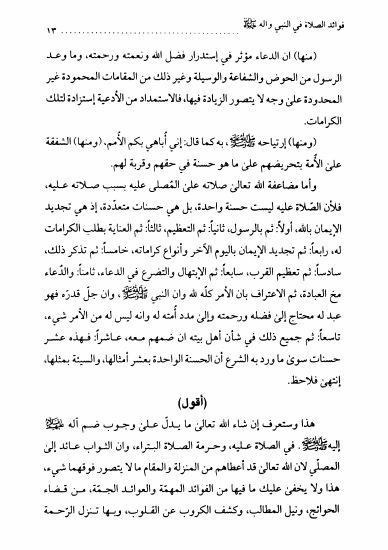 فوائد الصلاة في النبي واله ﷺ ............ ١٣
(منها) ان الدعاء مؤثر في إستدرار فضل الله ونعمته ورحمته، وما وعد
الرسول من الحوض والشفاعة والوسيلة وغير ذلك من المقامات المحمودة غير
المحدودة على وجه لا يتصور الزيادة فيها، فالاستمداد من الأدعية إستزادة لتلك
الكرامات.
(ومنها) إرتياحه ﷺ، به كما قال: إني أباهي بكم الأمم، (ومنها) الشفقة
على الأمة بتحريضهم على ما هو حسنة في حقهم وقربة لهم.
وأما مضاعفة الله تعالى صلاته على المصلى عليه بسبب صلاته عليه،
فلأن الصّلاة عليه ليست حسنة واحدة، بل هي حسنات متعدّدة، إذ هي تجديد
الإيمان بالله، أولاً: ثم بالرسول، ثانياً: ثم التعظيم، ثالثاً: ثم العناية بطلب الكرامات
له، رابعاً: ثم تجديد الإيمان باليوم الآخر وأنواع كراماته، خامساً: ثم تذكر ذلك،
سادساً: ثم تعظيم القرب، سابعاً: ثم الإبتهال والتضرع في الدعاء، ثامناً: والدّعاء
مخ العبادة، ثم الاعتراف بان الأمر كلّه لله وان النبي ﷺ، وان جلّ قدرّه فهو
عبد له محتاج إلى فضله ورحمته وإلى مدد أمته له وانه ليس له من الأمر شيء،
تاسعاً: ثم جميع ذلك في شأن أهل بيته ان ضمهم معه، عاشراً: فهذه عشر
حسنات سوى ما ورد به الشرع أن الحسنة الواحدة بعشر أمثالها، والسيئة بمثلها،
إنتهى فلاحظ.
(أقول)
هذا وستعرف إن شاء الله تعالى ما يدلّ على وجوب ضم آله ﷺ
إليه ﷺ. في الصلاة عليه، وحرمة الصلاة البتراء، وان الثواب عائد إلى
المصلّي لان الله تعالى قد أعطاهم من المنزلة والمقام ما لا يتصور فوقهما شيء،
هذا ولا يخفى عليك ما فيها من الفوائد المهمّة والعوائد الجمّة، من قضاء
الحوائج، ونيل المطالب، وكشف الكروب عن القلوب، وبها تنزل الرحمة